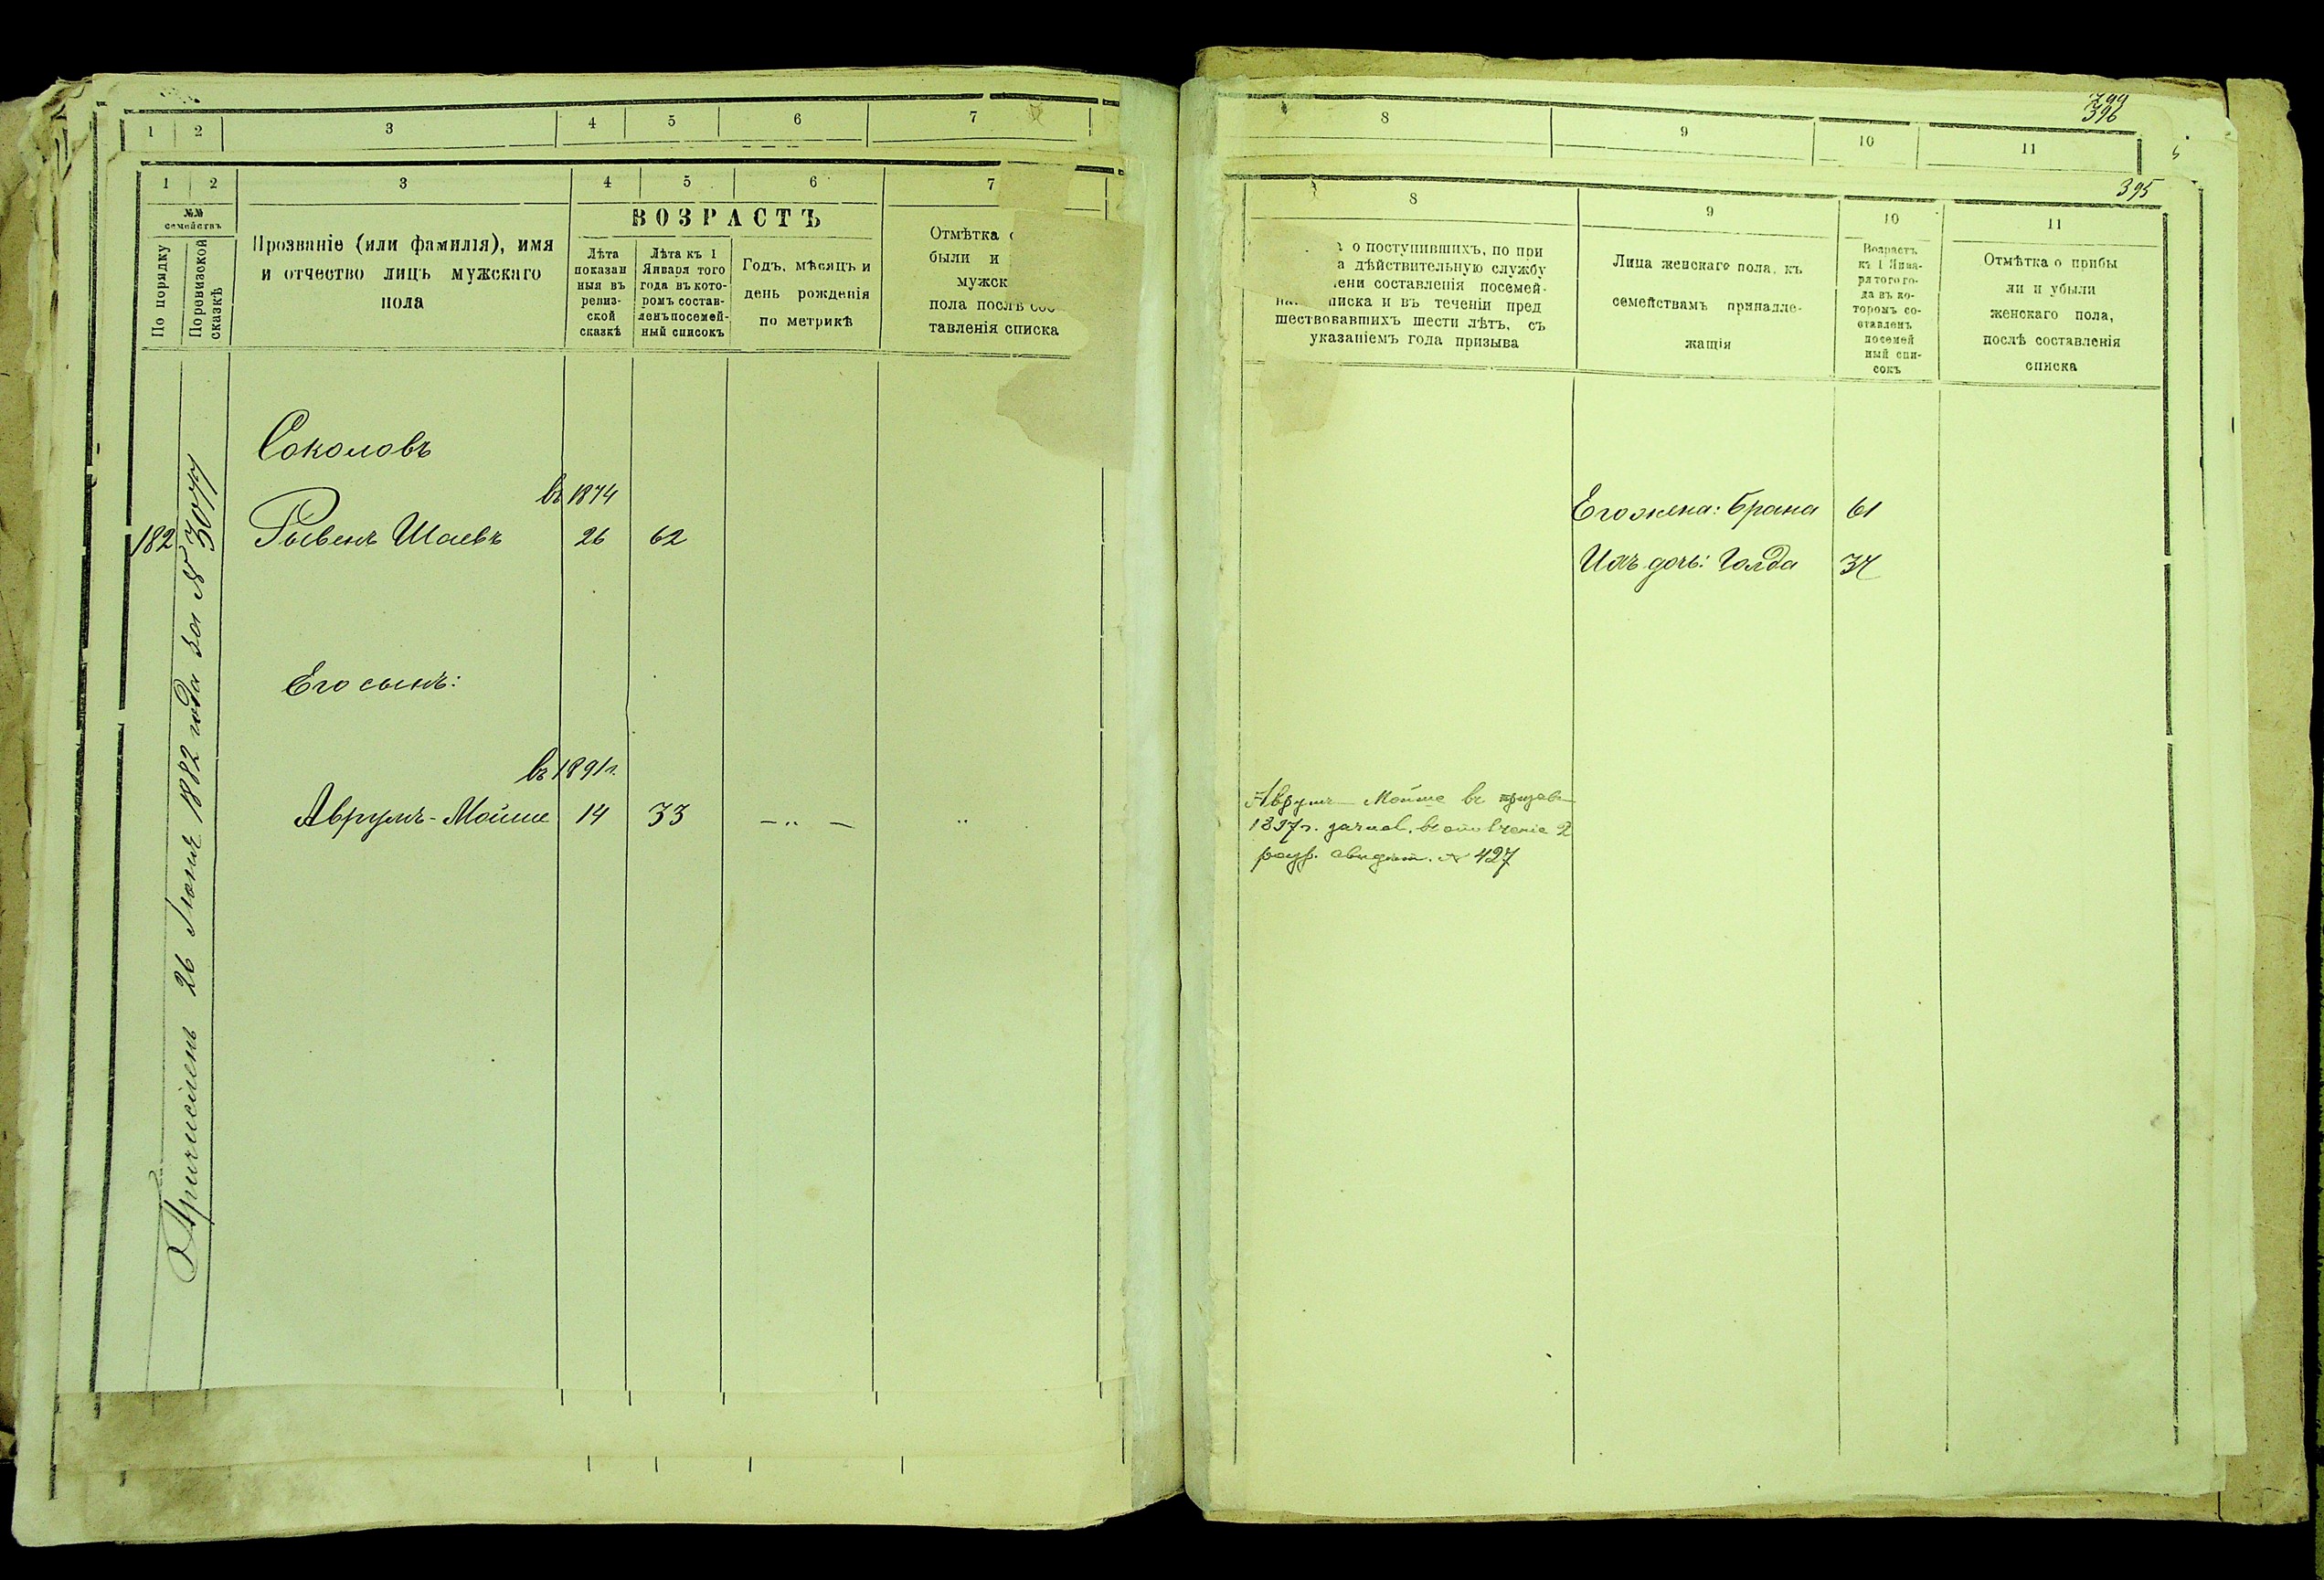 1 2 3 4 5 6 7
1 2 3 4 5 6 7
№№ семействъ
По порядку
По ревизской сказкѣ
Прозваніе (или фамилія), имя
и отчество лицъ мужскаго
пола
ВОЗРАСТЪ
Лѣта
показан
ныя въ
ревиз-
ской
сказкѣ
Лѣта къ 1
Января того
года въ кото-
ромъ состав-
ленъ посемей-
ный списокъ
Годъ, мѣсяцъ и
день рожденія
по метрикѣ
Отмѣтка
были и
мужск
пола послѣ сос
тавленія списка
Соколовъ
въ 1874
182 Рывенъ Шаевъ 26 62
Его сынъ:
въ 1891 г.
Аврумъ-Мойше 14 33 — „ — „
Причисленъ 26 Іюня 1882 года за № 3077
8 9 10 11
396
395
8 9 10 11
о поступившихъ, по при
а дѣйствительную службу
ени составленія посемей-
писка и въ теченіи пред
шествовавшихъ шести лѣтъ, съ
указаніемъ года призыва
Лица женскаго пола, къ
семействамъ принадле-
жащія
Возрастъ
къ 1 Янва-
ря того го-
да въ ко-
торомъ со-
ставленъ
посемей
ный спи-
сокъ
Отмѣтка о прибы
ли и убыли
женскаго пола,
послѣ составленія
списка
Его жена: Брана 61
Ихъ дочь: Голда 34
Аврумъ-Мойше въ призывъ
1897 г. зачисл. въ ополченіе 2
разр. свидѣт. № 427